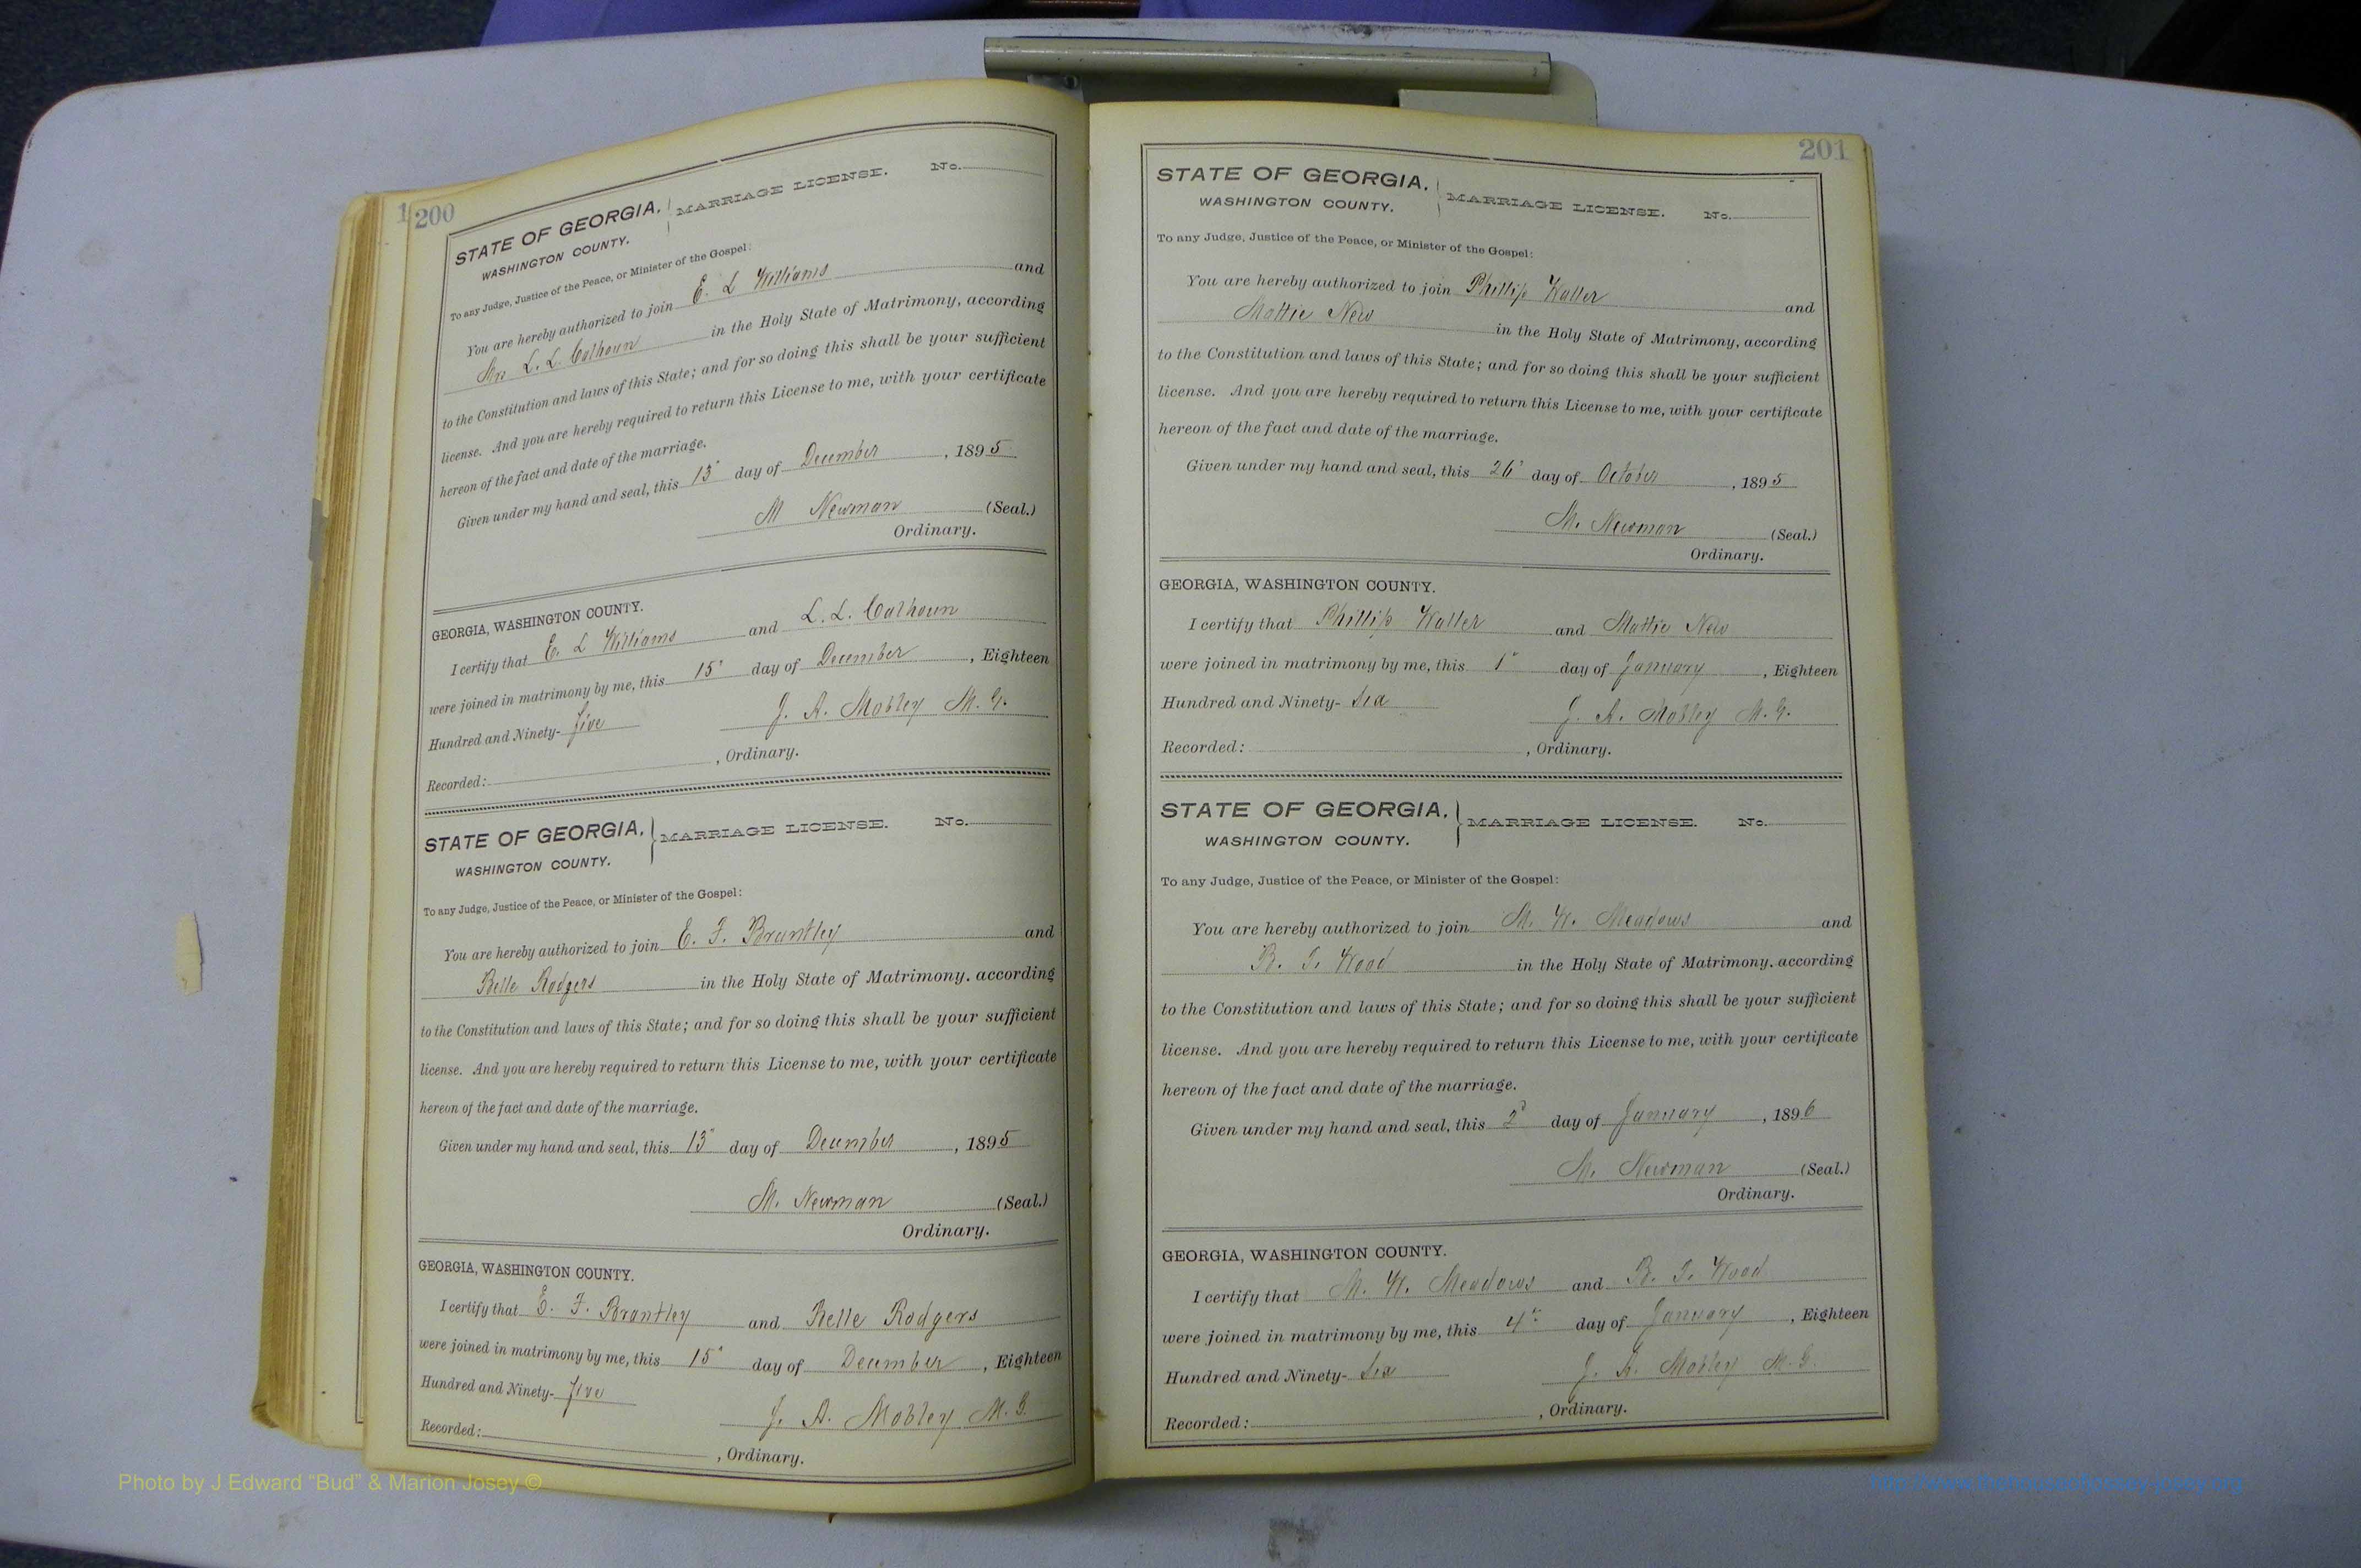 200
STATE OF GEORGIA, MARRIAGE LICENSE. No.
WASHINGTON COUNTY.
To any Judge, Justice of the Peace, or Minister of the Gospel:
You are hereby authorized to join E. L Williams and
Mrs L. L. Calhoun in the Holy State of Matrimony, according
to the Constitution and laws of this State; and for so doing this shall be your sufficient
license. And you are hereby required to return this License to me, with your certificate
hereon of the fact and date of the marriage.
Given under my hand and seal, this 13" day of December, 1895
M Newman (Seal.)
Ordinary.
GEORGIA, WASHINGTON COUNTY.
I certify that E. L Williams and L. L. Calhoun
were joined in matrimony by me, this 15" day of December, Eighteen
Hundred and Ninety-five J. A. Mobley M. G.
Recorded: , Ordinary.
STATE OF GEORGIA, MARRIAGE LICENSE. No.
WASHINGTON COUNTY.
To any Judge, Justice of the Peace, or Minister of the Gospel:
You are hereby authorized to join E. F. Brantley and
Belle Rodgers in the Holy State of Matrimony, according
to the Constitution and laws of this State; and for so doing this shall be your sufficient
license. And you are hereby required to return this License to me, with your certificate
hereon of the fact and date of the marriage.
Given under my hand and seal, this 13" day of December, 1895
M. Newman (Seal.)
Ordinary.
GEORGIA, WASHINGTON COUNTY.
I certify that E. F. Brantley and Belle Rodgers
were joined in matrimony by me, this 15" day of December, Eighteen
Hundred and Ninety-five J. A. Mobley M. G.
Recorded: , Ordinary.
201
STATE OF GEORGIA, MARRIAGE LICENSE. No.
WASHINGTON COUNTY.
To any Judge, Justice of the Peace, or Minister of the Gospel:
You are hereby authorized to join Phillip Waller and
Mattie New in the Holy State of Matrimony, according
to the Constitution and laws of this State; and for so doing this shall be your sufficient
license. And you are hereby required to return this License to me, with your certificate
hereon of the fact and date of the marriage.
Given under my hand and seal, this 26" day of October, 1895
M. Newman (Seal.)
Ordinary.
GEORGIA, WASHINGTON COUNTY.
I certify that Phillip Waller and Mattie New
were joined in matrimony by me, this 1" day of January, Eighteen
Hundred and Ninety-Six J. A. Mobley M. G.
Recorded: , Ordinary.
STATE OF GEORGIA, MARRIAGE LICENSE. No.
WASHINGTON COUNTY.
To any Judge, Justice of the Peace, or Minister of the Gospel:
You are hereby authorized to join M. W. Meadows and
B. T. Wood in the Holy State of Matrimony, according
to the Constitution and laws of this State; and for so doing this shall be your sufficient
license. And you are hereby required to return this License to me, with your certificate
hereon of the fact and date of the marriage.
Given under my hand and seal, this 2d day of January, 1896
M. Newman (Seal.)
Ordinary.
GEORGIA, WASHINGTON COUNTY.
I certify that M. W. Meadows and B. T. Wood
were joined in matrimony by me, this 4th day of January, Eighteen
Hundred and Ninety-Six J. A. Mobley M. G.
Recorded: , Ordinary.
Photo by J Edward "Bud" & Marion Josey ©